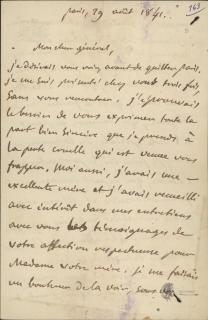 163
Paris, 29 août 1841.
Mon cher général,
je désirais vous voir avant de quitter Paris.
je me suis présenté chez vous trois fois,
sans vous rencontrer. j'éprouvais
le besoin de vous exprimer toute la
part bien sincère que je prends à
la perte cruelle qui est venue vous
frapper. Moi aussi, j'avais une
excellente mère et j'avais recueilli
avec intérêt dans mes entretiens
avec vous les témoignages de
votre affection respectueuse pour
Madame votre mère. je me faisais
un bonheur de la voir, sous